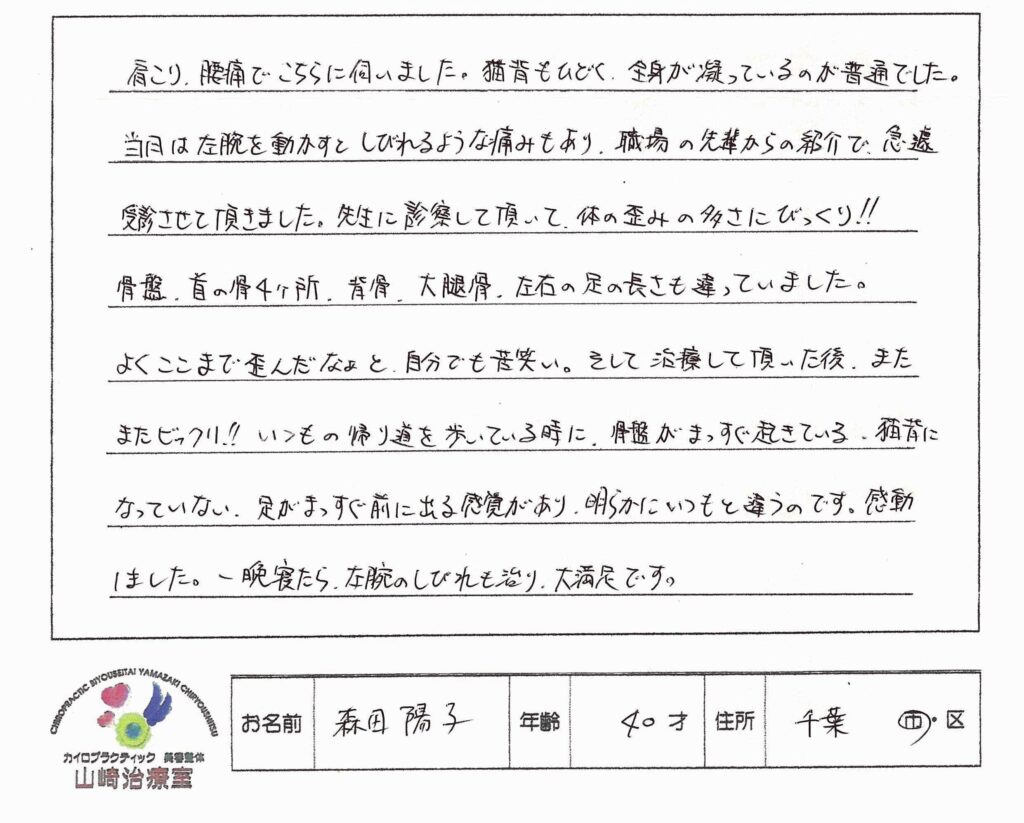 肩こり、腰痛でこちらに伺いました。猫背もひどく、全身が凝っているのが普通でした。
当日は左腕を動かすとしびれるような痛みもあり、職場の先輩からの紹介で、急遽
受診させて頂きました。先生に診察して頂いて、体の歪みの多さにびっくり!!
骨盤、首の骨4ヶ所、背骨、大腿骨、左右の足の長さも違っていました。
よくここまで歪んだなぁと、自分でも苦笑い。そして治療して頂いた後、また
またビックリ!! いつもの帰り道を歩いている時に、骨盤がまっすぐ起きている、猫背に
なっていない、足がまっすぐ前に出る感覚があり、明らかにいつもと違うのです。感動
しました。一晩寝たら、左腕のしびれも治り、大満足です。
CHIROPRACTIC BIYOUSEITAI YAMAZAKI CHIRYOUSHITSU
カイロプラクティック 美容整体
山崎治療室
お名前 森田 陽子 年齢 40才 住所 千葉 市・区